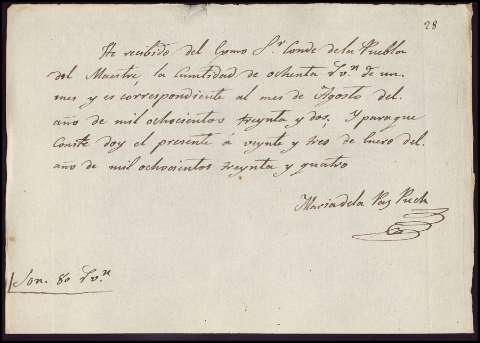 28
He recibido del Exmo Sr Conde de la Puebla
del Maestre, la Cantidad de ochenta Rvn de un
mes y es correspondiente al mes de Agosto del
año de mil ochocientos treynta y dos, Y para que
Conste doy el presente á veynte y tres de Enero del
año de mil ochocientos treynta y quatro
Maria de la Paz Puch
Son 80 Rvn